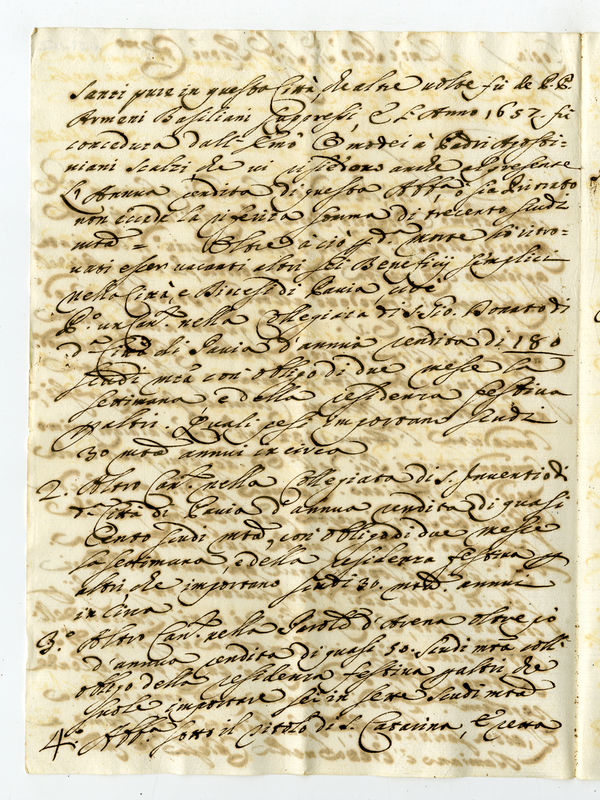 Santi pure in questa Città, che altre volte fù de P.P.
Armeni Basiliani, e l'Anno 1657. fù
conceduta dall' Em.o Omodei à Padri Agosti=
niani Scalzi che vi risiedono anche al presente
L'Annua rendita di questa Abb.a
non eccede la somma di trecento scudi
mtã = Oltre à ciò p d.a morte si ritro=
vati esser vacanti altri sei Beneficij semplici
nella Città, e Diocesi di Pavia, cioè
P.o un Can.to nella Collegiata di S. Gio. Donato di
d.a Città di Pavia d'annua rendita di 180
scudi mtã con obligo di due messe la
settimana e della residenza festiva
p altri. Quali pesi importano scudi
30 mtã annui in circa
2. Altro Can.to nella Collegiata di S. Inventio di
d.a Città di Pavia d'annua rendita di quasi
Cento scudi mtã, con obligo di due messe
la settimana, e della residenza festiva p
altri che importano scudi 30. mtã annui
in circa
3.o Altro Can.to nella d'Arena Oltre pò
d'annua rendita di quasi 50. scudi mtã coll'
obligo della residenza festiva p altri, che
suole importare sei in sette scudi mtã
4.o Abb.a sotto il titolo di S. Catarina, e